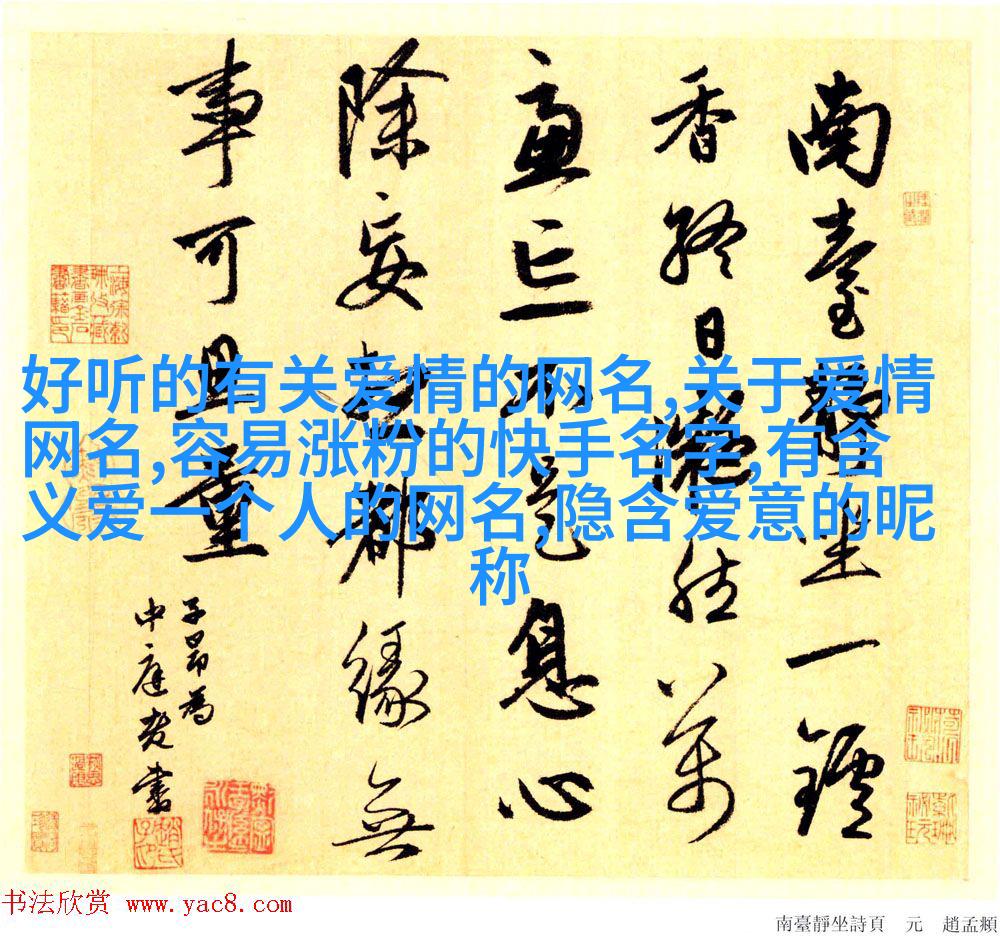 南臺靜坐一鑪
香終日凝然萬
慮亡不是息心
除妄想都緣無
事可思量
子昂為
中庭老書
好听的有关爱情的网名,关于爱情
网名,容易涨粉的快手名字,有含
义爱一个人的网名,隐含爱意的昵
称
书法欣赏 www.yac8.com
南臺靜坐詩頁 元 趙孟頫